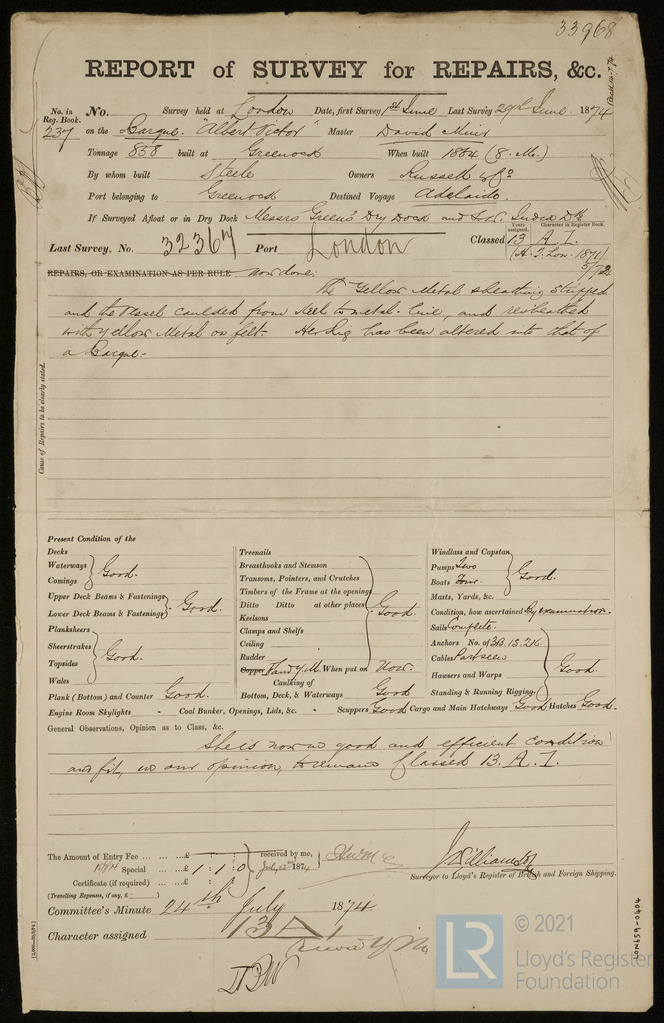 33968
REPORT of SURVEY for REPAIRS, &c.
No. in Reg. Book. 237
No. Survey held at London Date, first Survey 1st June Last Survey 29th June 1874
on the Barque "Albert Victor" Master David Muir
Tonnage 858 built at Greenock When built 1864 (8. Mo.)
By whom built Steele Owners Russell & Co
Port belonging to Greenock Destined Voyage Adelaide
If Surveyed Afloat or in Dry Dock Messrs Green's Dry Dock and India Dk
Years assigned. Character in Register Book.
Last Survey, No. 32367 Port London Classed 13 A.1.
REPAIRS, OR EXAMINATION AS PER RULE now done:
The Yellow Metal sheathing stripped
and the Vessel caulked from keel to metal-line, and resheathed
with Yellow Metal on felt. Her Rig has been altered into that of
a Barque.-
Cause of Repairs to be clearly stated.
Present Condition of the
Decks
Waterways
Comings
Good.
Upper Deck Beams & Fastenings
Lower Deck Beams & Fastenings
Good.
Planksheers
Sheerstrakes
Topsides
Wales
Good.
Plank (Bottom) and Counter Good.
Treenails
Breasthooks and Stemson
Transoms, Pointers, and Crutches
Timbers of the Frame at the openings
Ditto Ditto at other places
Keelsons
Clamps and Shelfs
Ceiling
Rudder
Good.
Copper F and Y.M. When put on Now.
Caulking of
Bottom, Deck, & Waterways Good
Windlass and Capstan
Pumps Two
Boats Four
Good.
Masts, Yards, &c.
Condition, how ascertained By examination.
Sails Complete.
Anchors No. of 3B. 1S. 2K.
Cables Part seen
Hawsers and Warps
Standing & Running Rigging
Good.
Engine Room Skylights - Coal Bunker, Openings, Lids, &c. - Scuppers Good Cargo and Main Hatchways Good Hatches Good.
General Observations, Opinion as to Class, &c.
She is now in good and efficient condition
and fit, in our opinion, to remain Classed 13. A. 1.
The Amount of Entry Fee ... ... ...£ : : received by me,
Special ... ...£ 1 : 1 : 0 July 1874
Certificate (if required) ... ...£ : :
(Travelling Expenses, if any, £ )
J Williamson
Surveyor to Lloyd's Register of British and Foreign Shipping.
Committee's Minute 24th July 1874
Character assigned 13 A 1
LON659-0404
© 2021
LR
Lloyd's Register
Foundation